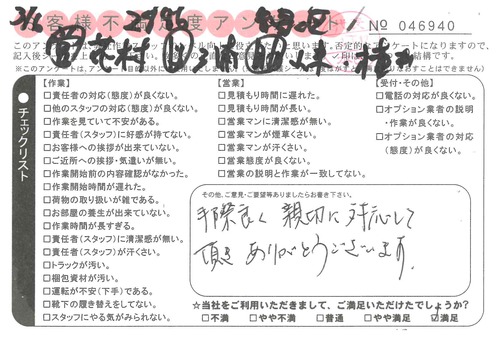 お客様不満足度アンケート
№ 046940
※このアンケートは、アンケート目的以外に
チェックリスト
【作業】
□責任者の対応(態度)が良くない。
□他のスタッフの対応(態度)が良くない。
□作業を見ていて不安がある。
□責任者(スタッフ)に好感が持てない。
□お客様への挨拶が出来ていない。
□ご近所への挨拶・気遣いが無い。
□作業開始前の内容確認がなかった。
□作業開始時間が遅れた。
□荷物の取り扱いが雑である。
□お部屋の養生が出来ていない。
□作業時間が長すぎる。
□責任者(スタッフ)に清潔感が無い。
□責任者(スタッフ)が汗くさい。
□トラックが汚い。
□梱包資材が汚い。
□運転が不安(下手)である。
□靴下の履き替えをしてない。
□スタッフにやる気がみられない。
【営業】
□見積もり時間に遅れた。
□見積もり時間が長い。
□営業マンに清潔感が無い。
□営業マンが煙草くさい。
□営業マンが汗くさい。
□営業態度が良くない。
□営業の説明と作業が一致してない。
【受付・その他】
□電話の対応が良くない。
□オプション業者の説明
・作業が良くない。
□オプション業者の対応
(態度)が良くない。
その他、ご意見・ご要望等ありましたらお書き下さい。
手際良く 親切に対応して
頂き ありがとうございます。
☆当社をご利用いただきまして、ご満足いただけたでしょうか?
□不満 □やや不満 □普通 □やや満足 ☑満足